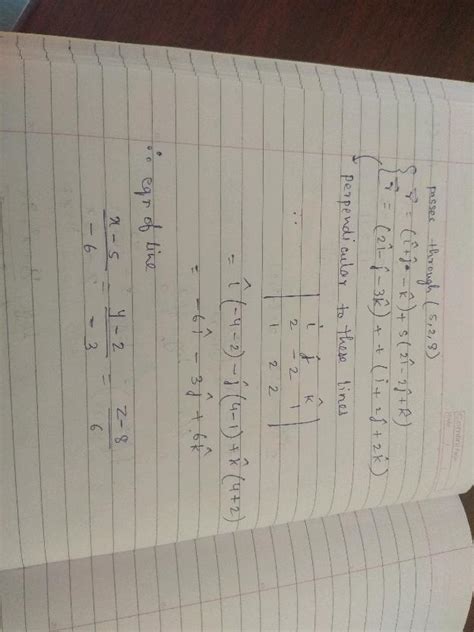 passes through (5,2,8)
r⃗ = (î+ĵ-k̂)+s(2î-2ĵ+k̂)
r⃗ = (2î-ĵ-3k̂)+t(î+2ĵ+2k̂)
perpendicular to these lines
∵ | î ĵ k̂ |
| 2 -2 1 |
| 1 2 2 |
= î(-4-2)-ĵ(4-1)+k̂(4+2)
= -6î-3ĵ+6k̂
∴ eqn of line
x-5/-6 = y-2/-3 = z-8/6